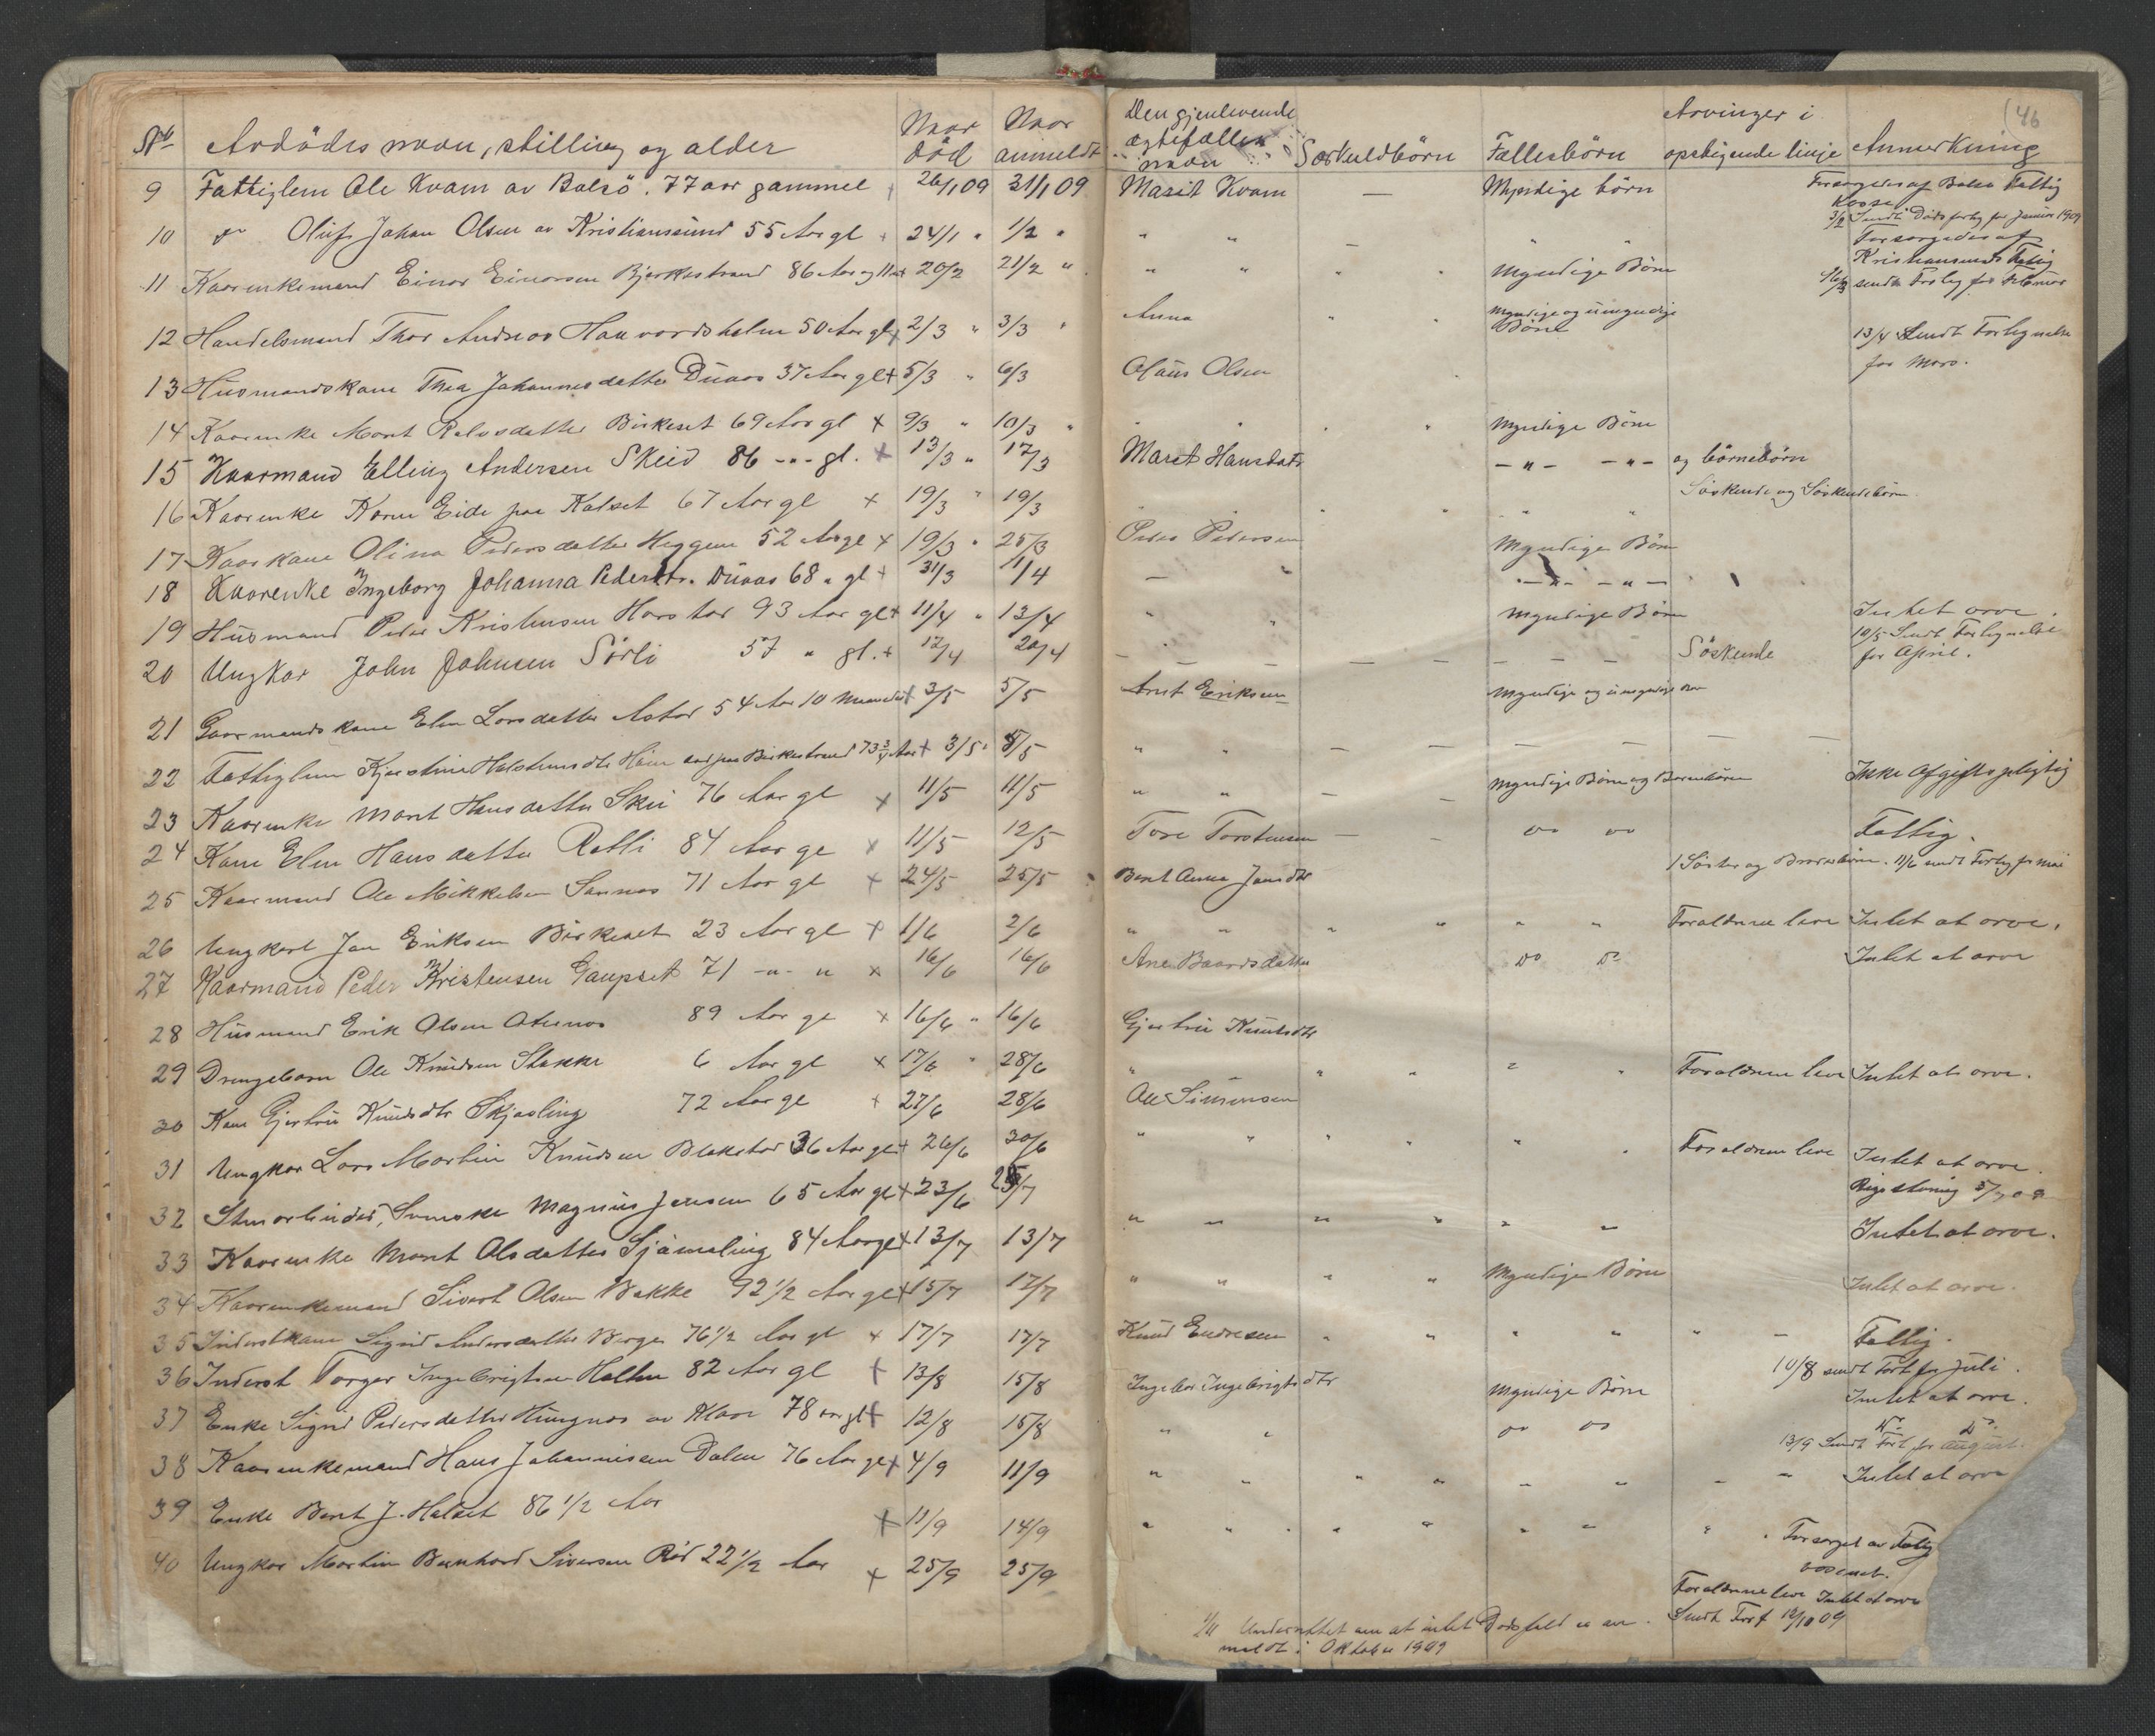 (46
No Avdödes navn, stilling og alder Naar död Naar anmeldt Den gjenlevende ægtefælles navn Særkuldbörn Fællesbörn Arvinger i opstigende linje Anmerkning
9 Fattiglem Ole Kvam av Bolsö. 77 aar gammel 26/1 09 31/1 09 Marit Kvam — Myndige börn Forsørgedes af Bolsø Fattig Kasse
3/2 Sendt Dødsfortg for Januar 1909
10 do Oluf Johan Olsen av Kristiansund 55 Aar gl + 24/1 " 1/2 " " " — " " Forsørgedes af Kristiansunds Fattig
11 Kaarenkemand Einar Einarsen Bjerkestrand 86 Aar og 11 + 20/2 21/2 " " " " " Myndige Börn sendt Fortg for Februar
12 Handelsmand Thor Andreas Haavardsholm 50 Aar gl + 2/3 " 3/3 " Anna " " Myndige og umyndige Börn
13/4 Sendt Fortegnelse for Mars.
13 Husmandskone Thea Johannesdatter Duaas 37 Aar gl + 5/3 " 6/3 Olaus Olsen
14 Kaarenke Marit Rolvsdatter Birkeset 69 Aar gl + 9/3 " 10/3 " " " " " Myndige Börn
15 Kaarmand Elling Andersen Skeid 86 -"- gl. + 13/3 " 17/3 Maret Hansdatr -"- -"- og börnebörn
16 Kaarenke Karen Eide paa Kalset 67 Aar gl + 19/3 " 19/3 " " " " " " Söskende og Söskendebörn
17 Kaarkone Olina Pedersdatter Heggem 52 Aar gl + 19/3 " 25/3 Peder Pedersen Myndige Börn
18 Kaarenke Ingeborg Johanna Pedersdtr. Duaas 68 " gl + 31/3 1/4 — " -"- -"-
19 Husmand Peder Kristensen Harstad 93 Aar gl + 11/4 " 13/4 " " Myndige Börn Intet arve.
20 Ungkar John Johnsen Sörli 57 " gl. + 12/4 20/4 — — — — — — — Söskende 10/5 Sendt Fortegnelse for April.
21 Gaarmandskone Elen Larsdatter Astad 54 Aar 10 Maaneder + 3/5 5/5 Arnt Eriksen Myndige og umyndige
22 Fattiglem Kjerstine Halstensdtr paa Birkestrand 73 3/4 Aar + 3/5 " 8/5 " " — — — — — —
23 Kaarenke Marit Hansdatter Skei 76 Aar gl + 11/5 11/5 " " — — Myndige Börn og Barnebörn Ikke Afgiftspligtig
24 Kone Elen Hansdatter Rötli 84 Aar gl + 11/5 12/5 Tore Torstensen — — do do Fattig.
25 Kaarmand Ole Mikkelsen Sannes 71 Aar gl + 24/5 25/5 Berit Anna Jonsdtr 1 Söster og Broderbörn. 11/6 sendt Fortg for Mai
26 Ungkarl Jon Eriksen Birkeset 23 Aar gl + 1/6 2/6 " " " " " " Forældrene leve Intet at arve.
27 Kaarmand Peder Kristensen Gaupset 71 -"- " + 16/6 16/6 Ane Baardsdatter do do Intet at arve
28 Husmand Erik Olsen Aternes 89 Aar gl + 16/6 " 16/6 Gjertrui Knutsdtr
29 Drengebarn Ole Knudsen Stokke 6 Aar gl + 17/6 " 28/6 " " " " " Forældrene leve Intet at arve.
30 Kone Gjertrui Knudsdtr Skjøsling 72 Aar gl + 27/6 28/6 Ole Simonsen
31 Ungkar Lars Martin Knudsen Blakstad 36 Aar gl + 26/6 30/6 " " " " " " Forældrene leve Intet at arve.
32 Svenske Magnus Jensen 65 Aar gl + 23/6 25/7 Registrering 5/7 09
" " " " " " Intet at arve.
33 Kaarenke Marit Olsdatter Sjämeling 84 Aar gl + 13/7 13/7
34 Kaarenkemand Sivert Olsen Bakke 92 1/2 Aar gl + 15/7 17/7 " " " " Myndige Börn Intet at arve.
35 Inderstkone Sigrid Andersdatter Berge 76 1/2 Aar gl + 17/7 17/7 Knud Endresen " " " " " — Fattig.
10/8 sendt Fort for Juli.
36 Inderst Torger Ingebrigtsen Holten 82 Aar gl + 13/8 15/8 Ingebor Ingebrigtsdtr Myndige Börn Intet at arve.
37 Enke Sigrid Pedersdatter Hungnes av 78 aar gl + 12/8 15/8 " " do do Do Do.
13/9 Sendt Fort for August.
38 Kaarenkemand Hans Johannesen Dalen 76 Aar gl + 4/9 11/9 " " " " " " " " Intet at arve
39 Enke Berit J. Halset 86 1/2 Aar + 11/9 14/9 " " " " " " " " " Forsørget av Fattigvæsenet.
40 Ungkar Martin Bernhard Siversen Röd 22 1/2 Aar + 25/9 25/9 Forældrene leve Intet at arve
Sendt Fort 12/10 09
Underrettet om at intet Dødsfald er anmeldt i Oktober 1909